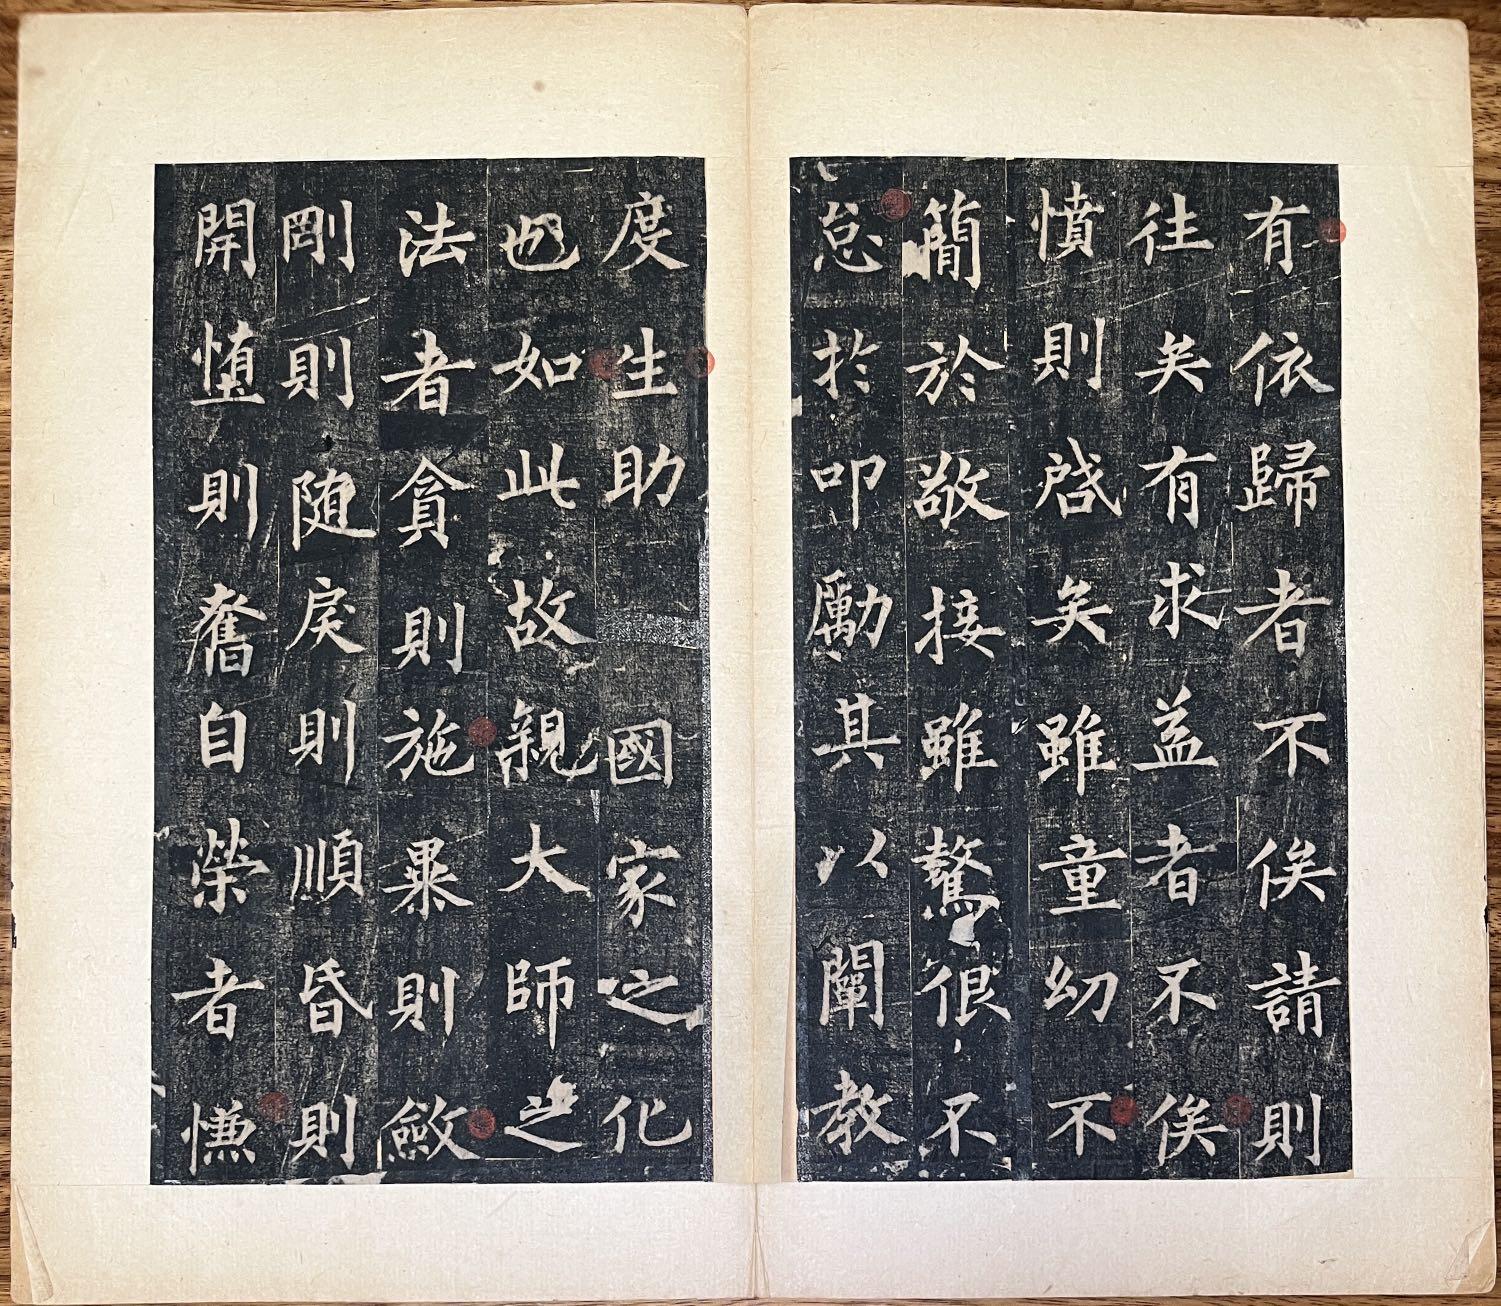 有依歸者不俟請則
往矣有求益者不俟
憤則啓矣雖童幼不
簡於敬接雖驁佷不
怠於叩勵其以闡教
度生助國家之化
也如此故親大師之
法者貪則施暴則斂
剛則随戾則順昏則
開墮則奮自榮者慊